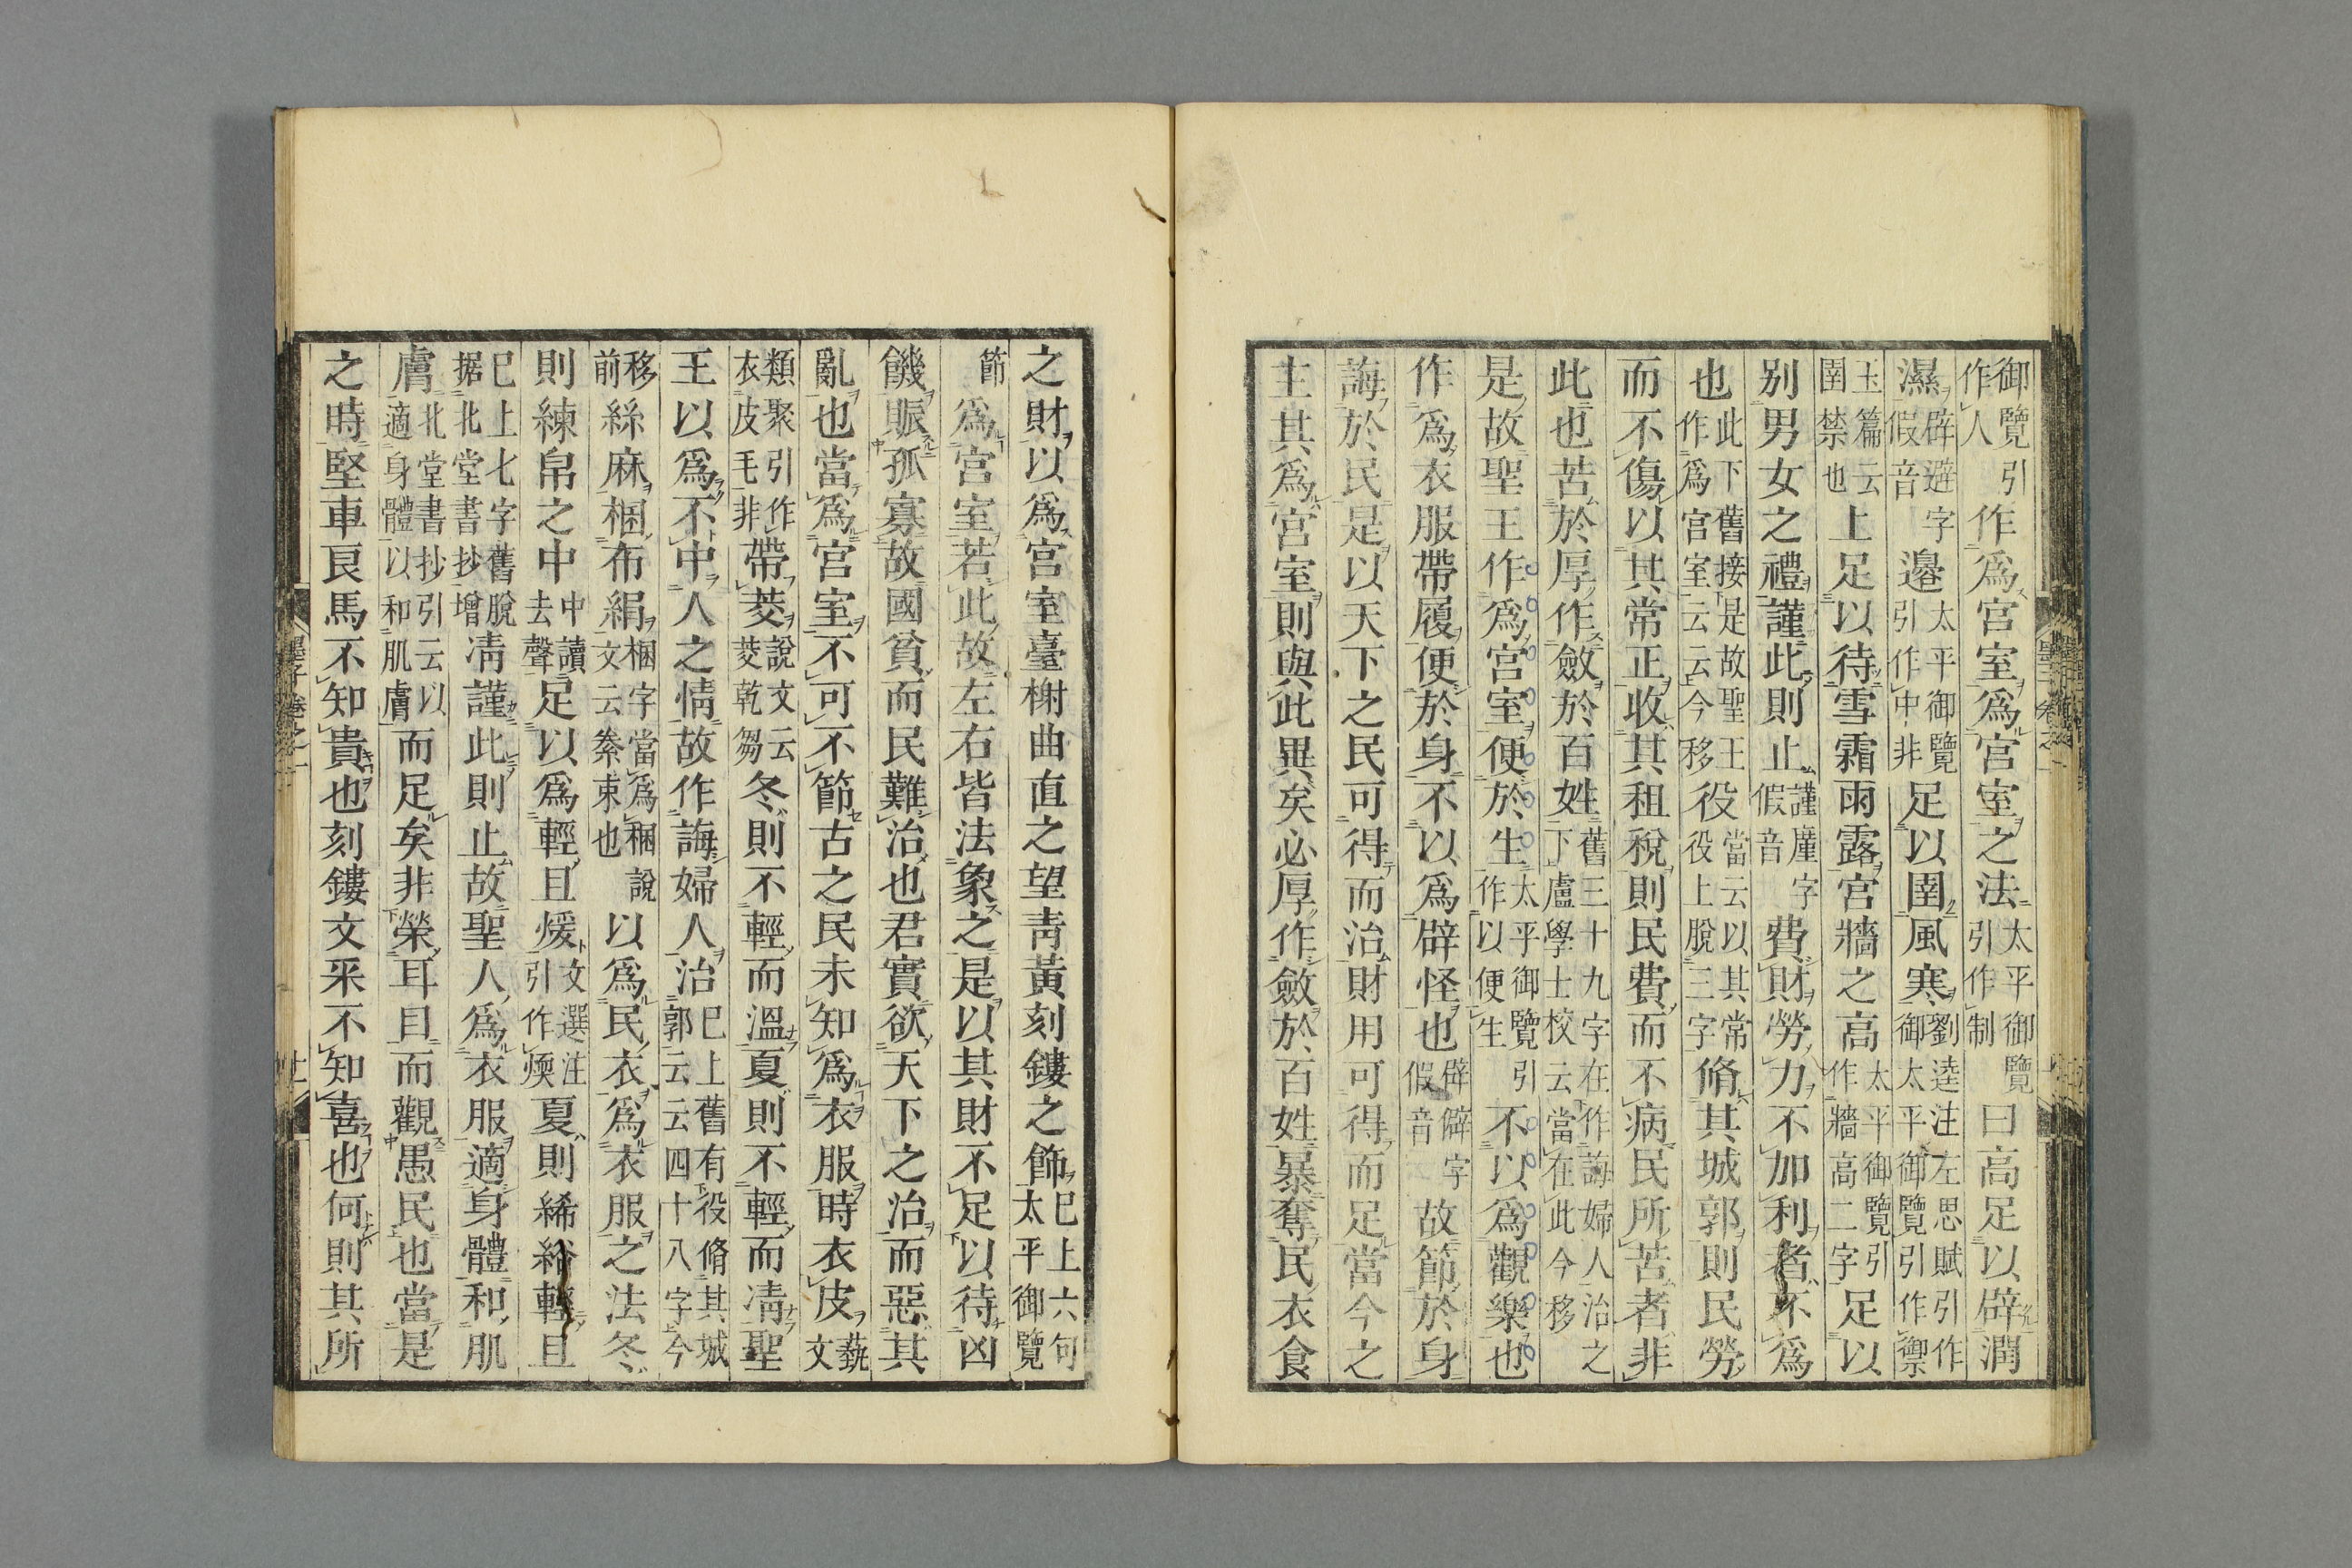 御覽引作人作爲宮室爲宮室之法太平御覽引作制曰高足以辟潤
濕辟避字假音邊太平御覽引作中非足以圉風寒劉逵注左思賦引作御太平御覽引作禦
玉篇云圉禁也上足以待雪霜雨露宮牆之高太平御覽引作牆高二字足以
別男女之禮謹此則止謹廑字假音費財勞力不加利者不爲
也此下舊接是故聖王作爲宮室云云今移役當云以其常役上脫三字脩其城郭則民勞
而不傷以其常正收其租稅則民費而不病民所苦者非
此也苦於厚作斂於百姓舊三十九字在作誨婦人治之下盧學士校云當在此今移
是故聖王作爲宮室便於生太平御覽引作以便生不以爲觀樂也
作爲衣服帶履便於身不以爲辟怪也辟僻字假音故節於身
誨於民是以天下之民可得而治財用可得而足當今之
主其爲宮室則與此異矣必厚作斂於百姓暴奪民衣食
之財以爲宮室臺榭曲直之望青黃刻鏤之飾巳上六句太平御覽
節爲宮室若此故左右皆法象之是以其財不足以待凶
饑賑孤寡故國貧而民難治也君實欲天下之治而惡其
亂也當爲宮室不可不節古之民未知爲衣服時衣皮藝文
類聚引作衣皮毛非帶茭說文云茭乾芻冬則不輕而溫夏則不輕而凊聖
王以爲不中人之情故作誨婦人治巳上舊有役脩其城郭云云四十八字今
移前絲麻梱布絹梱字當爲稛說文云絭束也以爲民衣爲衣服之法冬
則練帛之中中讀去聲足以爲輕且煖文選注引作煗夏則絺綌輕且
凊巳上七字舊脫据北堂書抄增謹此則止故聖人爲衣服適身體和肌
膚北堂書抄引云以適身體以和肌膚而足矣非榮耳目而觀愚民也當是
之時堅車良馬不知貴也刻鏤文采不知喜也何則其所
墨子卷之一
十一